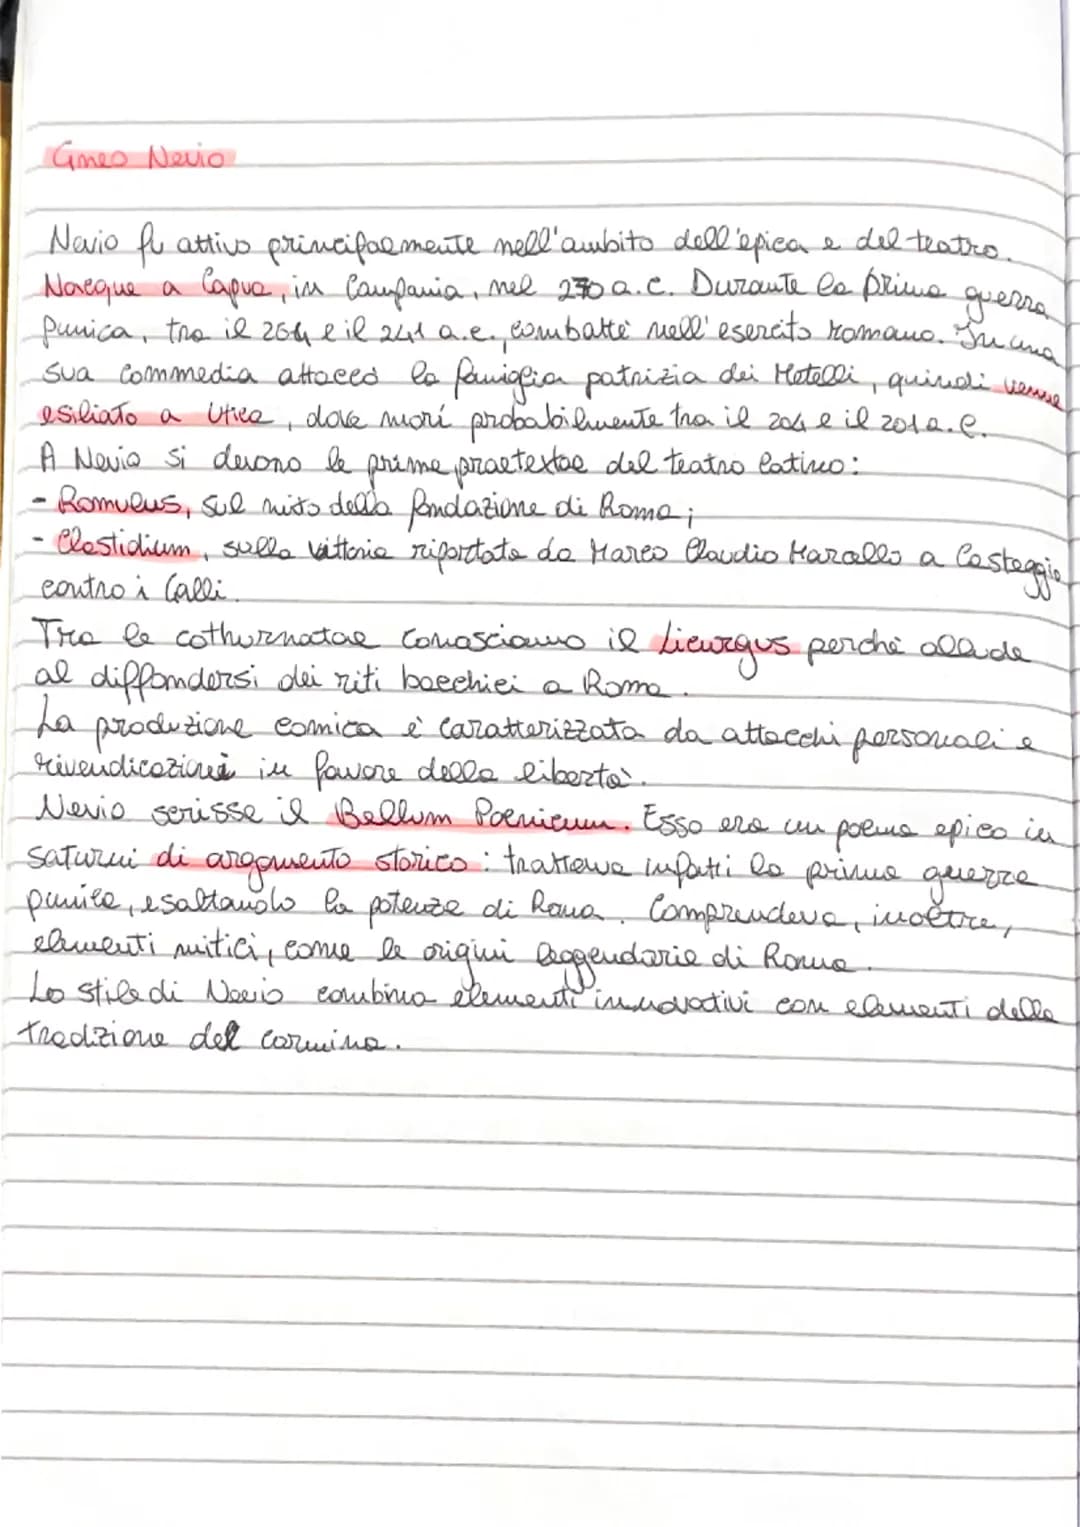 Gneo Nevio
Nevio fu attivo principalmente nell'ambito dell'epica e del teatro.
Nacque a Capua, in Campania, nel 270 a.C. Durante la prima guerra
punica, tra il 264 e il 241 a.C., combatté nell'esercito romano. In una
sua commedia attaccò la famiglia patrizia dei Metelli, quindi venne
esiliato a Utica, dove morì probabilmente tra il 204 e il 201 a.C.
A Nevio si devono le prime praetextae del teatro latino:
- Romulus, sul mito della fondazione di Roma;
- Clastidium, sulla vittoria riportata da Marco Claudio Marcello a Casteggio
contro i Galli.
Tra le cothurnatae conosciamo il Licurgus perché allude
al diffondersi dei riti bacchici a Roma.
La produzione comica è caratterizzata da attacchi personali e
rivendicazioni in favore della libertà.
Nevio scrisse il Bellum Poenicum. Esso era un poema epico in
saturni di argomento storico: trattava infatti la prima guerra
punica, esaltando la potenza di Roma. Comprendeva, inoltre,
elementi mitici, come le origini leggendarie di Roma.
Lo stile di Nevio combina elementi innovativi con elementi della
tradizione del carmina.